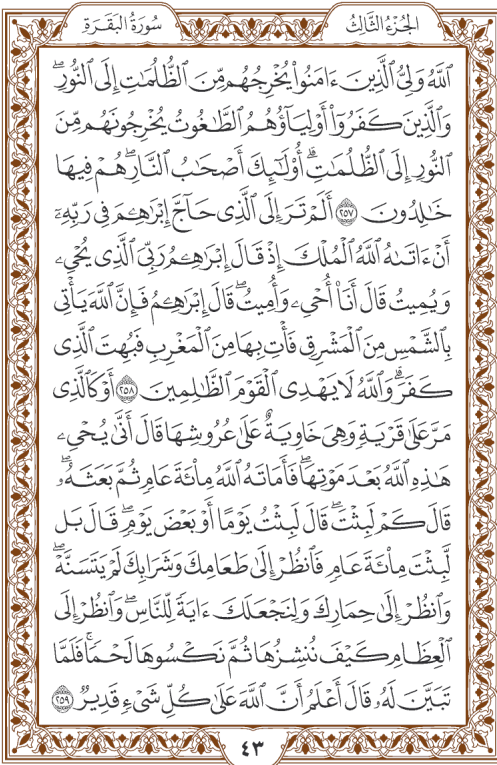 سُورَةُ البَقَرَةِ
الجُزْءُ الثَّالِثُ
اللَّهُ وَلِيُّ الَّذِينَ ءَامَنُوا يُخْرِجُهُم مِّنَ الظُّلُمَٰتِ إِلَى النُّورِۖ
وَالَّذِينَ كَفَرُوٓا أَوْلِيَآؤُهُمُ الطَّٰغُوتُ يُخْرِجُونَهُم مِّنَ
النُّورِ إِلَى الظُّلُمَٰتِۗ أُو۟لَٰٓئِكَ أَصْحَٰبُ النَّارِۖ هُمْ فِيهَا
خَٰلِدُونَ ٢٥٧ أَلَمْ تَرَ إِلَى الَّذِى حَآجَّ إِبْرَٰهِـۧمَ فِى رَبِّهِۦٓ
أَنْ ءَاتَىٰهُ اللَّهُ الْمُلْكَ إِذْ قَالَ إِبْرَٰهِـۧمُ رَبِّىَ الَّذِى يُحْىِۦ
وَيُمِيتُ قَالَ أَنَا۠ أُحْىِۦ وَأُمِيتُۖ قَالَ إِبْرَٰهِـۧمُ فَإِنَّ اللَّهَ يَأْتِى
بِالشَّمْسِ مِنَ الْمَشْرِقِ فَأْتِ بِهَا مِنَ الْمَغْرِبِ فَبُهِتَ الَّذِى
كَفَرَۗ وَاللَّهُ لَا يَهْدِى الْقَوْمَ الظَّٰلِمِينَ ٢٥٨ أَوْ كَالَّذِى
مَرَّ عَلَىٰ قَرْيَةٍ وَهِىَ خَاوِيَةٌ عَلَىٰ عُرُوشِهَا قَالَ أَنَّىٰ يُحْىِۦ
هَٰذِهِ اللَّهُ بَعْدَ مَوْتِهَاۖ فَأَمَاتَهُ اللَّهُ مِا۟ئَةَ عَامٍ ثُمَّ بَعَثَهُۥۖ
قَالَ كَمْ لَبِثْتَۖ قَالَ لَبِثْتُ يَوْمًا أَوْ بَعْضَ يَوْمٍۖ قَالَ بَل
لَّبِثْتَ مِا۟ئَةَ عَامٍ فَانظُرْ إِلَىٰ طَعَامِكَ وَشَرَابِكَ لَمْ يَتَسَنَّهْۖ
وَانظُرْ إِلَىٰ حِمَارِكَ وَلِنَجْعَلَكَ ءَايَةً لِّلنَّاسِۖ وَانظُرْ إِلَى
الْعِظَامِ كَيْفَ نُنشِزُهَا ثُمَّ نَكْسُوهَا لَحْمًاۚ فَلَمَّا
تَبَيَّنَ لَهُۥ قَالَ أَعْلَمُ أَنَّ اللَّهَ عَلَىٰ كُلِّ شَىْءٍ قَدِيرٌ ٢٥٩
٤٣